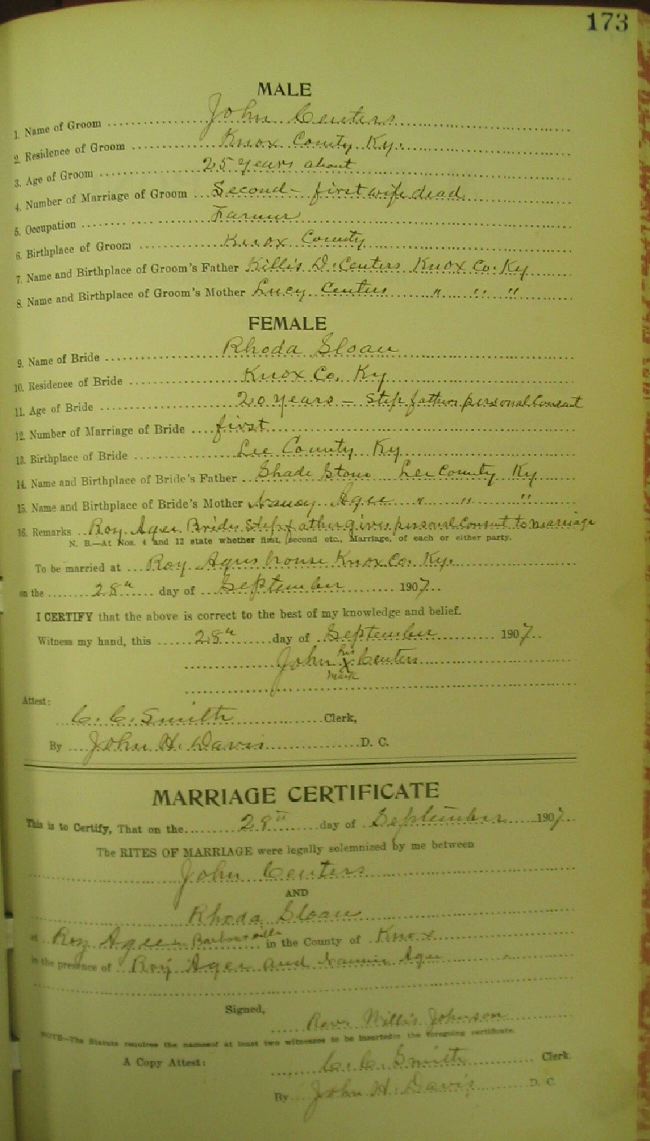 173
MALE
1. Name of Groom John Centers
2. Residence of Groom Knox County Ky.
3. Age of Groom 25 years about
4. Number of Marriage of Groom Second - first wife dead
5. Occupation Farmer
6. Birthplace of Groom Knox County
7. Name and Birthplace of Groom's Father Killis D. Centers Knox Co. Ky
8. Name and Birthplace of Groom's Mother Lucy Centers " " "
FEMALE
9. Name of Bride Rhoda Sloan
10. Residence of Bride Knox Co. Ky
11. Age of Bride 20 years - Step father personal Consent
12. Number of Marriage of Bride first
13. Birthplace of Bride Lee County Ky
14. Name and Birthplace of Bride's Father Shade Lee County Ky
15. Name and Birthplace of Bride's Mother Nancy Agee " " "
16. Remarks Roy Agee Brides Step father gives personal Consent to marriage
N. B.—At Nos. 4 and 12 state whether first, second etc., Marriage, of each or either party.
To be married at Roy Agees house Knox Co. Ky.
on the 28th day of September 1907
I CERTIFY that the above is correct to the best of my knowledge and belief.
Witness my hand, this 28th day of September 1907
his
John X Centers
mark
Attest:
C. C. Smith Clerk,
By John H. Davis D. C.
MARRIAGE CERTIFICATE
This is to Certify, That on the 28th day of September 1907
The RITES OF MARRIAGE were legally solemnized by me between
John Centers
AND
Rhoda Sloan
at Roy Agees Barbourville in the County of Knox
in the presence of Roy Agee and Agee
Signed,
Rev. Willis Johnson
NOTE—The Statute requires the names of at least two witnesses to be inserted in the foregoing certificate.
A Copy Attest: C. C. Smith Clerk
By John H. Davis D. C.